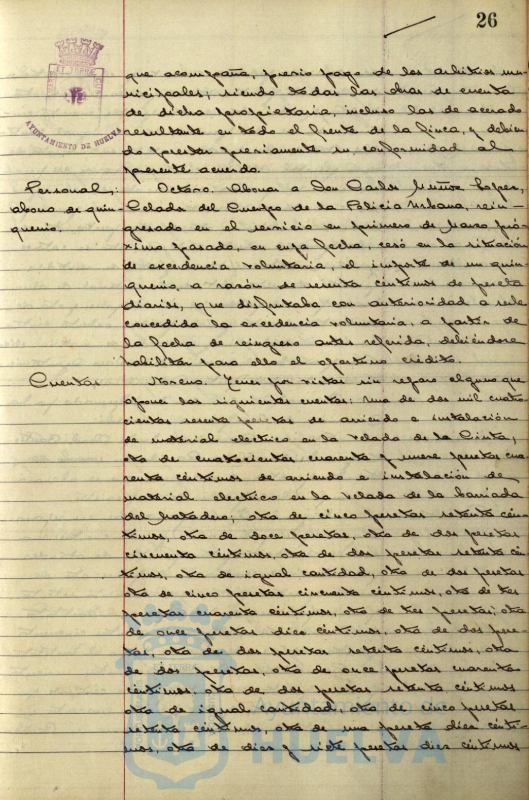 26
AYUNTAMIENTO DE HUELVA
que acompaña, previo pago de los arbitrios mu-
nicipales, siendo todas las obras de cuenta
de dicha propietaria, incluso las de acerado
resultante en todo el frente de la finca, y debien
do prestar previamente su conformidad al
presente acuerdo.
Personal;
abono de quin-
quenio.
Octavo. Abonar a Don Carlos Muñoz Lopez,
Celador del Cuerpo de la Policia Urbana, rein-
gresado en el servicio en primero de Marzo pró-
ximo pasado, en cuya fecha, cesó en la situación
de excedencia voluntaria, el importe de un quin-
quenio, a razón de sesenta céntimos de peseta
diarios, que disfrutaba con anterioridad a serle
concedida la excedencia voluntaria, a partir de
la fecha de reingreso antes referida, debiéndose
habilitar para ello el oportuno crédito.
Cuentas
Noveno. Tener por vistas sin reparo alguno que
oponer las siguientes cuentas: una de dos mil cuatro
cientas sesenta pesetas de arriendo e instalación
de material electrico en la Velada de la Cinta,
otra de cuatrocientas cuarenta y nueve pesetas cua
renta céntimos de arriendo e instalación de
material electrico en la velada de la barriada
del Matadero; otra de cinco pesetas setenta cén-
timos, otra de doce pesetas, otra de dos pesetas
cincuenta céntimos, otra de dos pesetas setenta cén-
timos, otra de igual cantidad, otra de dos pesetas
otra de cinco pesetas cincuenta céntimos, otra de tres
pesetas cuarenta céntimos, otra de tres pesetas, otra
de once pesetas diez céntimos, otra de dos pese
tas, otra de dos pesetas setenta céntimos, otra
de dos pesetas, otra de once pesetas cuarenta
céntimos, otra de dos pesetas setenta céntimos
otra de igual cantidad, otra de cinco pesetas
setenta céntimos, otra de una peseta diez cénti-
mos, otra de diez y siete pesetas diez céntimos
HUELVA